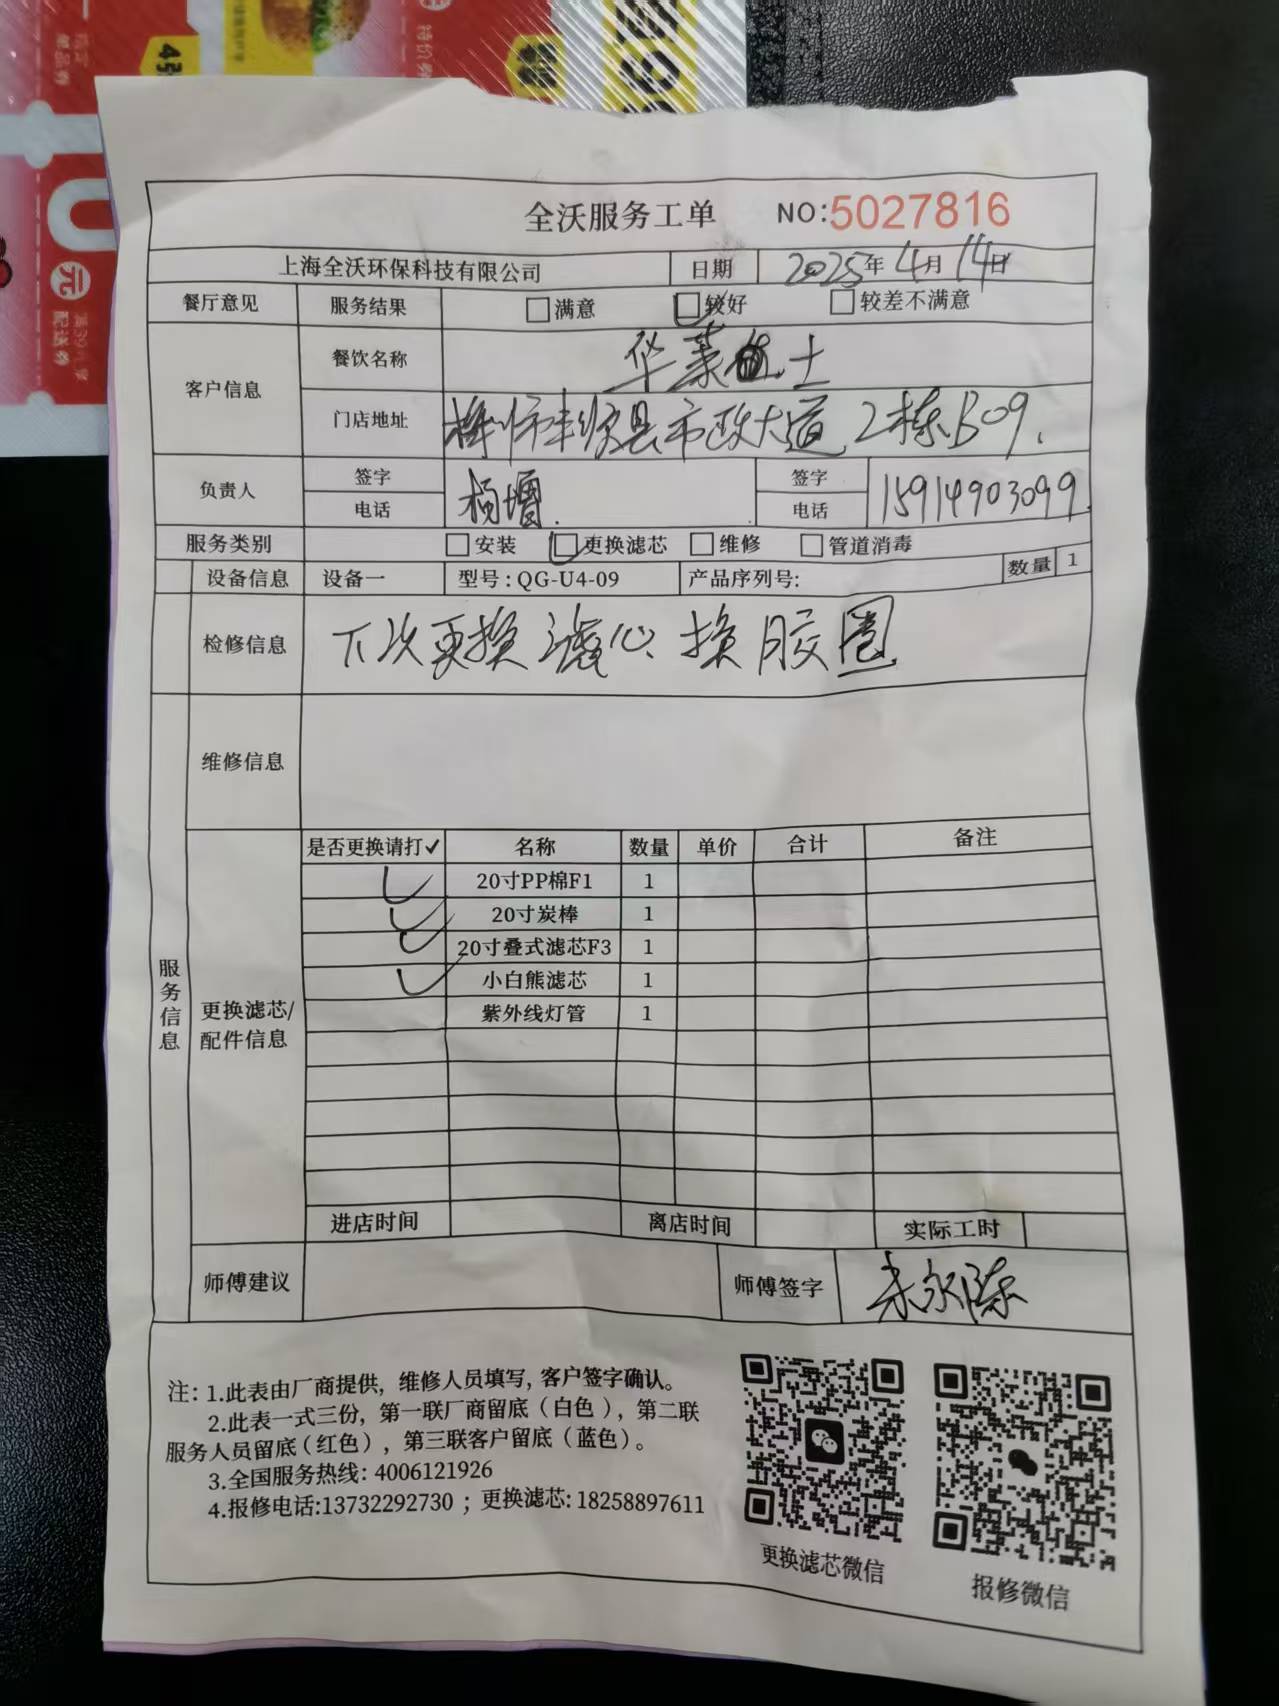 全沃服务工单 NO:5027816
上海全沃环保科技有限公司 日期 2025年4月14日
餐厅意见 服务结果 满意 较好 较差不满意
客户信息 餐饮名称 华莱士
门店地址 梅州市丰顺县市政大道2栋B09.
负责人 签字 签字
电话 杨增. 电话 15914903099
服务类别 安装 更换滤芯 维修 管道消毒
设备信息 设备一 型号:QG-U4-09 产品序列号: 数量 1
检修信息 下次更换滤心.换胶圈
维修信息
服务信息
更换滤芯/配件信息
是否更换请打✓ 名称 数量 单价 合计 备注
✓ 20寸PP棉F1 1
✓ 20寸炭棒 1
✓ 20寸叠式滤芯F3 1
✓ 小白熊滤芯 1
紫外线灯管 1
进店时间 离店时间 实际工时
师傅建议 师傅签字
注: 1.此表由厂商提供, 维修人员填写, 客户签字确认。
2.此表一式三份, 第一联厂商留底(白色), 第二联
服务人员留底(红色), 第三联客户留底(蓝色)。
3.全国服务热线: 4006121926
4.报修电话:13732292730 ; 更换滤芯: 18258897611
更换滤芯微信 报修微信
元